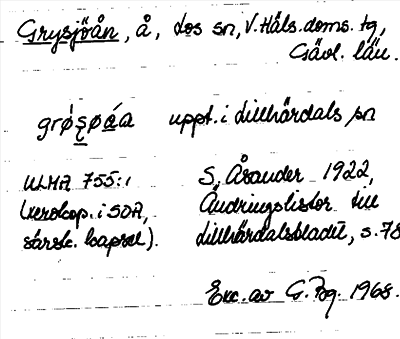 Grysjöån, å, Los sn, V. Häls. doms. tg,
Gävl. län.
grø̀ʂøáa uppt. i Lillhärdals sn
ULMA 755:1 S. Åsander 1922,
(xerokop. i SOA, Ändringslistor till
särsk. kapsel). Lillhärdalsbladet, s. 78
Exc. av G. Bg. 1968.